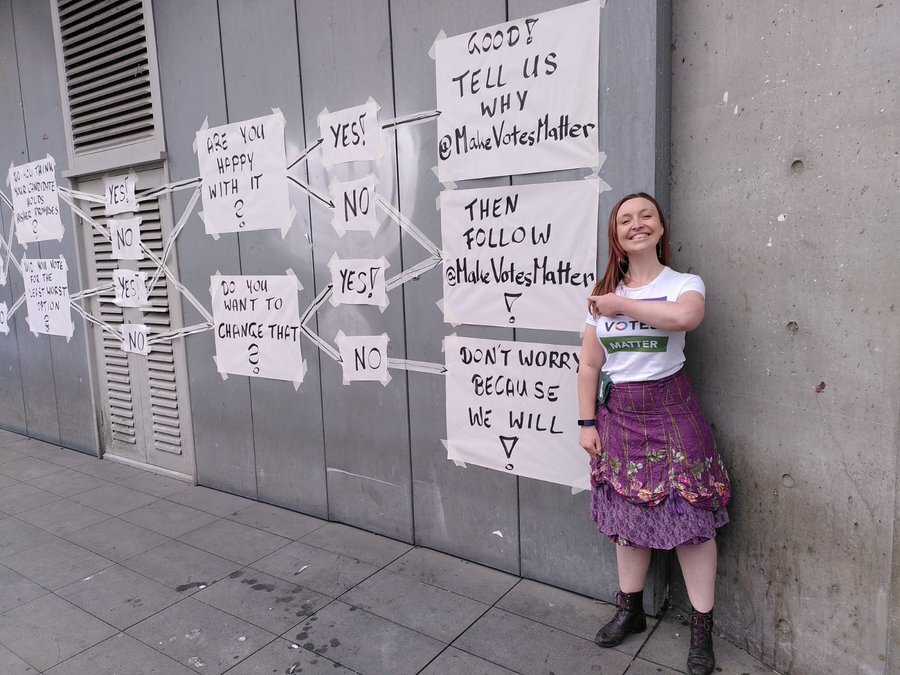 DO YOU THINK
YOUR CANDIDATE
HOLDS
PROMISES
?
DID YOU VOTE
FOR THE
LEAST WORST
OPTION
?
YES!
NO
YES!
NO
ARE YOU
HAPPY
WITH IT
?
DO YOU
WANT TO
CHANGE THAT
?
YES!
NO
YES!
NO
GOOD!
TELL US
WHY
@MakeVotesMatter
THEN
FOLLOW
@MakeVotesMatter
!
DON'T WORRY
BECAUSE
WE WILL
!
VOTES
MATTER